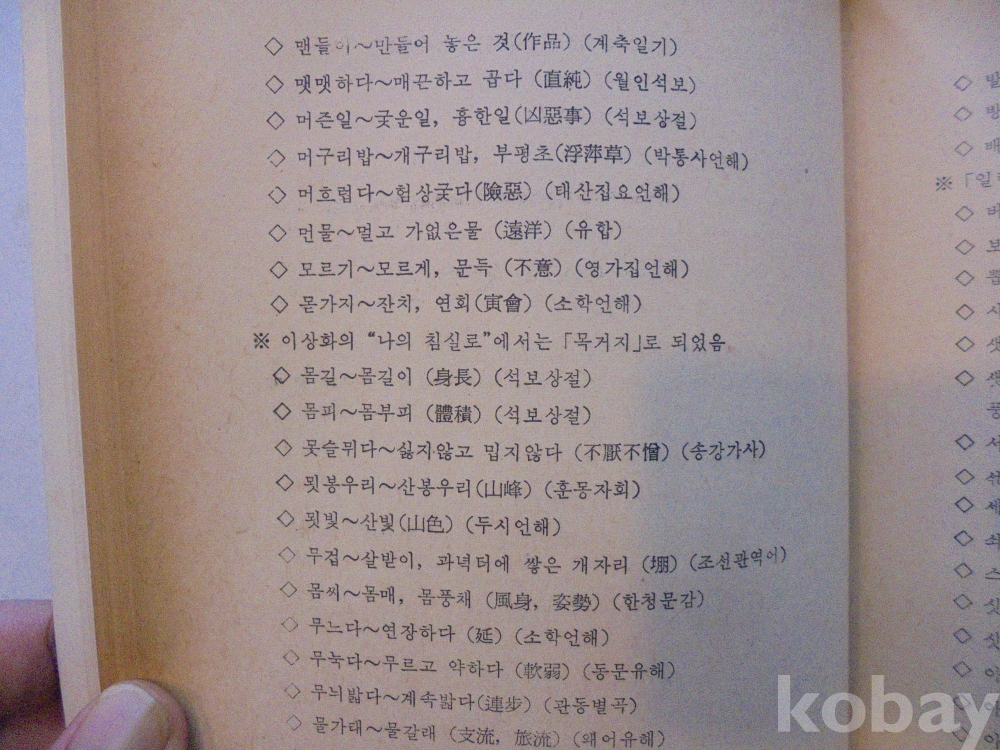 ◇ 맨들이～만들어 놓은 것(作品) (계축일기)
◇ 맷맷하다～매끈하고 곱다 (直純) (월인석보)
◇ 머즌일～궂운일, 흉한일(凶惡事) (석보상절)
◇ 머구리밥～개구리밥, 부평초(浮萍草) (박통사언해)
◇ 머흐럽다～험상궂다(險惡) (태산집요언해)
◇ 먼물～멀고 가없은물 (遠洋) (유합)
◇ 모르기～모르게, 문득 (不意) (영가집언해)
◇ 몯가지～잔치, 연회(寅會) (소학언해)
※ 이상화의 “나의 침실로”에서는 「목거지」로 되었음
◇ 몸길～몸길이 (身長) (석보상절)
◇ 몸피～몸부피 (體積) (석보상절)
◇ 못슬뮈다～싫지않고 밉지않다 (不厭不憎) (송강가사)
◇ 묏봉우리～산봉우리(山峰) (훈몽자회)
◇ 묏빛～산빛(山色) (두시언해)
◇ 무겁～살받이, 과녁터에 쌓은 개자리 (堋) (조선관역어)
◇ 몸씨～몸매, 몸풍채 (風身, 姿勢) (한청문감)
◇ 무느다～연장하다 (延) (소학언해)
◇ 무눅다～무르고 약하다 (軟弱) (동문유해)
◇ 무늬밟다～계속밟다(連步) (관동별곡)
◇ 물가래～물갈래 (支流, 旅流) (왜어유해)
※ 「일
kobay